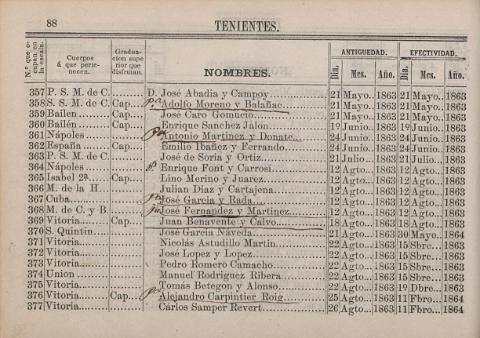 88 TENIENTES.
N.º que ocupan en la escala. Cuerpos á que pertenecen. Graduacion superior que disfrutan. NOMBRES. ANTIGUEDAD. Dia. Mes. Año. EFECTIVIDAD. Dia. Mes. Año.
357 P. S. M. de C. D. José Abadia y Campoy 21 Mayo. 1863 21 Mayo. 1863
358 S. S. M. de C. Cap. Adolfo Moreno y Balañac 21 Mayo. 1863 21 Mayo. 1863
359 Bailen Cap. José Caro Gomucio 21 Mayo. 1863 21 Mayo. 1863
360 Bailén Cap. Enrique Sanchez Jálon 19 Junio. 1863 19 Junio. 1863
361 Nápoles Antonio Martinez y Donate 24 Junio. 1863 24 Junio. 1863
362 España Cap. Emilio Ibañez y Ferrando 24 Junio. 1863 24 Junio. 1863
363 P. S. M. de C. José de Soria y Ortiz 21 Julio. 1863 21 Julio. 1863
364 Nápoles Enrique Font y Carrosi 12 Agto. 1863 12 Agto. 1863
365 Isabel 2.ª Cap. Lino Merino y Juarez 12 Agto. 1863 12 Agto. 1863
366 M. de la H. Julian Diaz y Cartajena 12 Agto. 1863 12 Agto. 1863
367 Cuba José Garcia y Rada 12 Agto. 1863 12 Agto. 1863
368 M. de C. y B. José Fernandez y Martinez 12 Agto. 1863 12 Agto. 1863
369 Vitoria Cap. Juan Benavente y Calvo 18 Agto. 1863 18 Agto. 1863
370 S. Quintin José Garcia Naveda 21 Agto. 1863 30 Mayo. 1864
371 Vitoria Nicolás Astudillo Martin 22 Agto. 1863 15 Sbre. 1863
372 Vitoria José Lopez y Lopez 22 Agto. 1863 15 Sbre. 1863
373 Vitoria Pedro Romero Camacho 22 Agto. 1863 15 Sbre. 1863
374 Union Manuel Rodriguez Ribera 22 Agto. 1863 15 Sbre. 1863
375 Vitoria Tomás Betegon y Alonso 22 Agto. 1863 19 Dbre. 1863
376 Vitoria Cap. Alejandro Carpintier Roig 25 Agto. 1863 11 Fbro. 1864
377 Vitoria Cárlos Samper Revert 26 Agto. 1863 11 Fbro. 1864